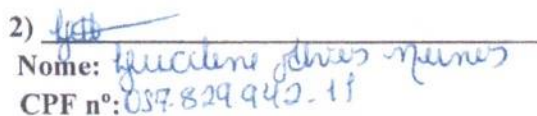 2)
Nome: Lucilene Alves Nunes
CPF nº: 057.829.942-11